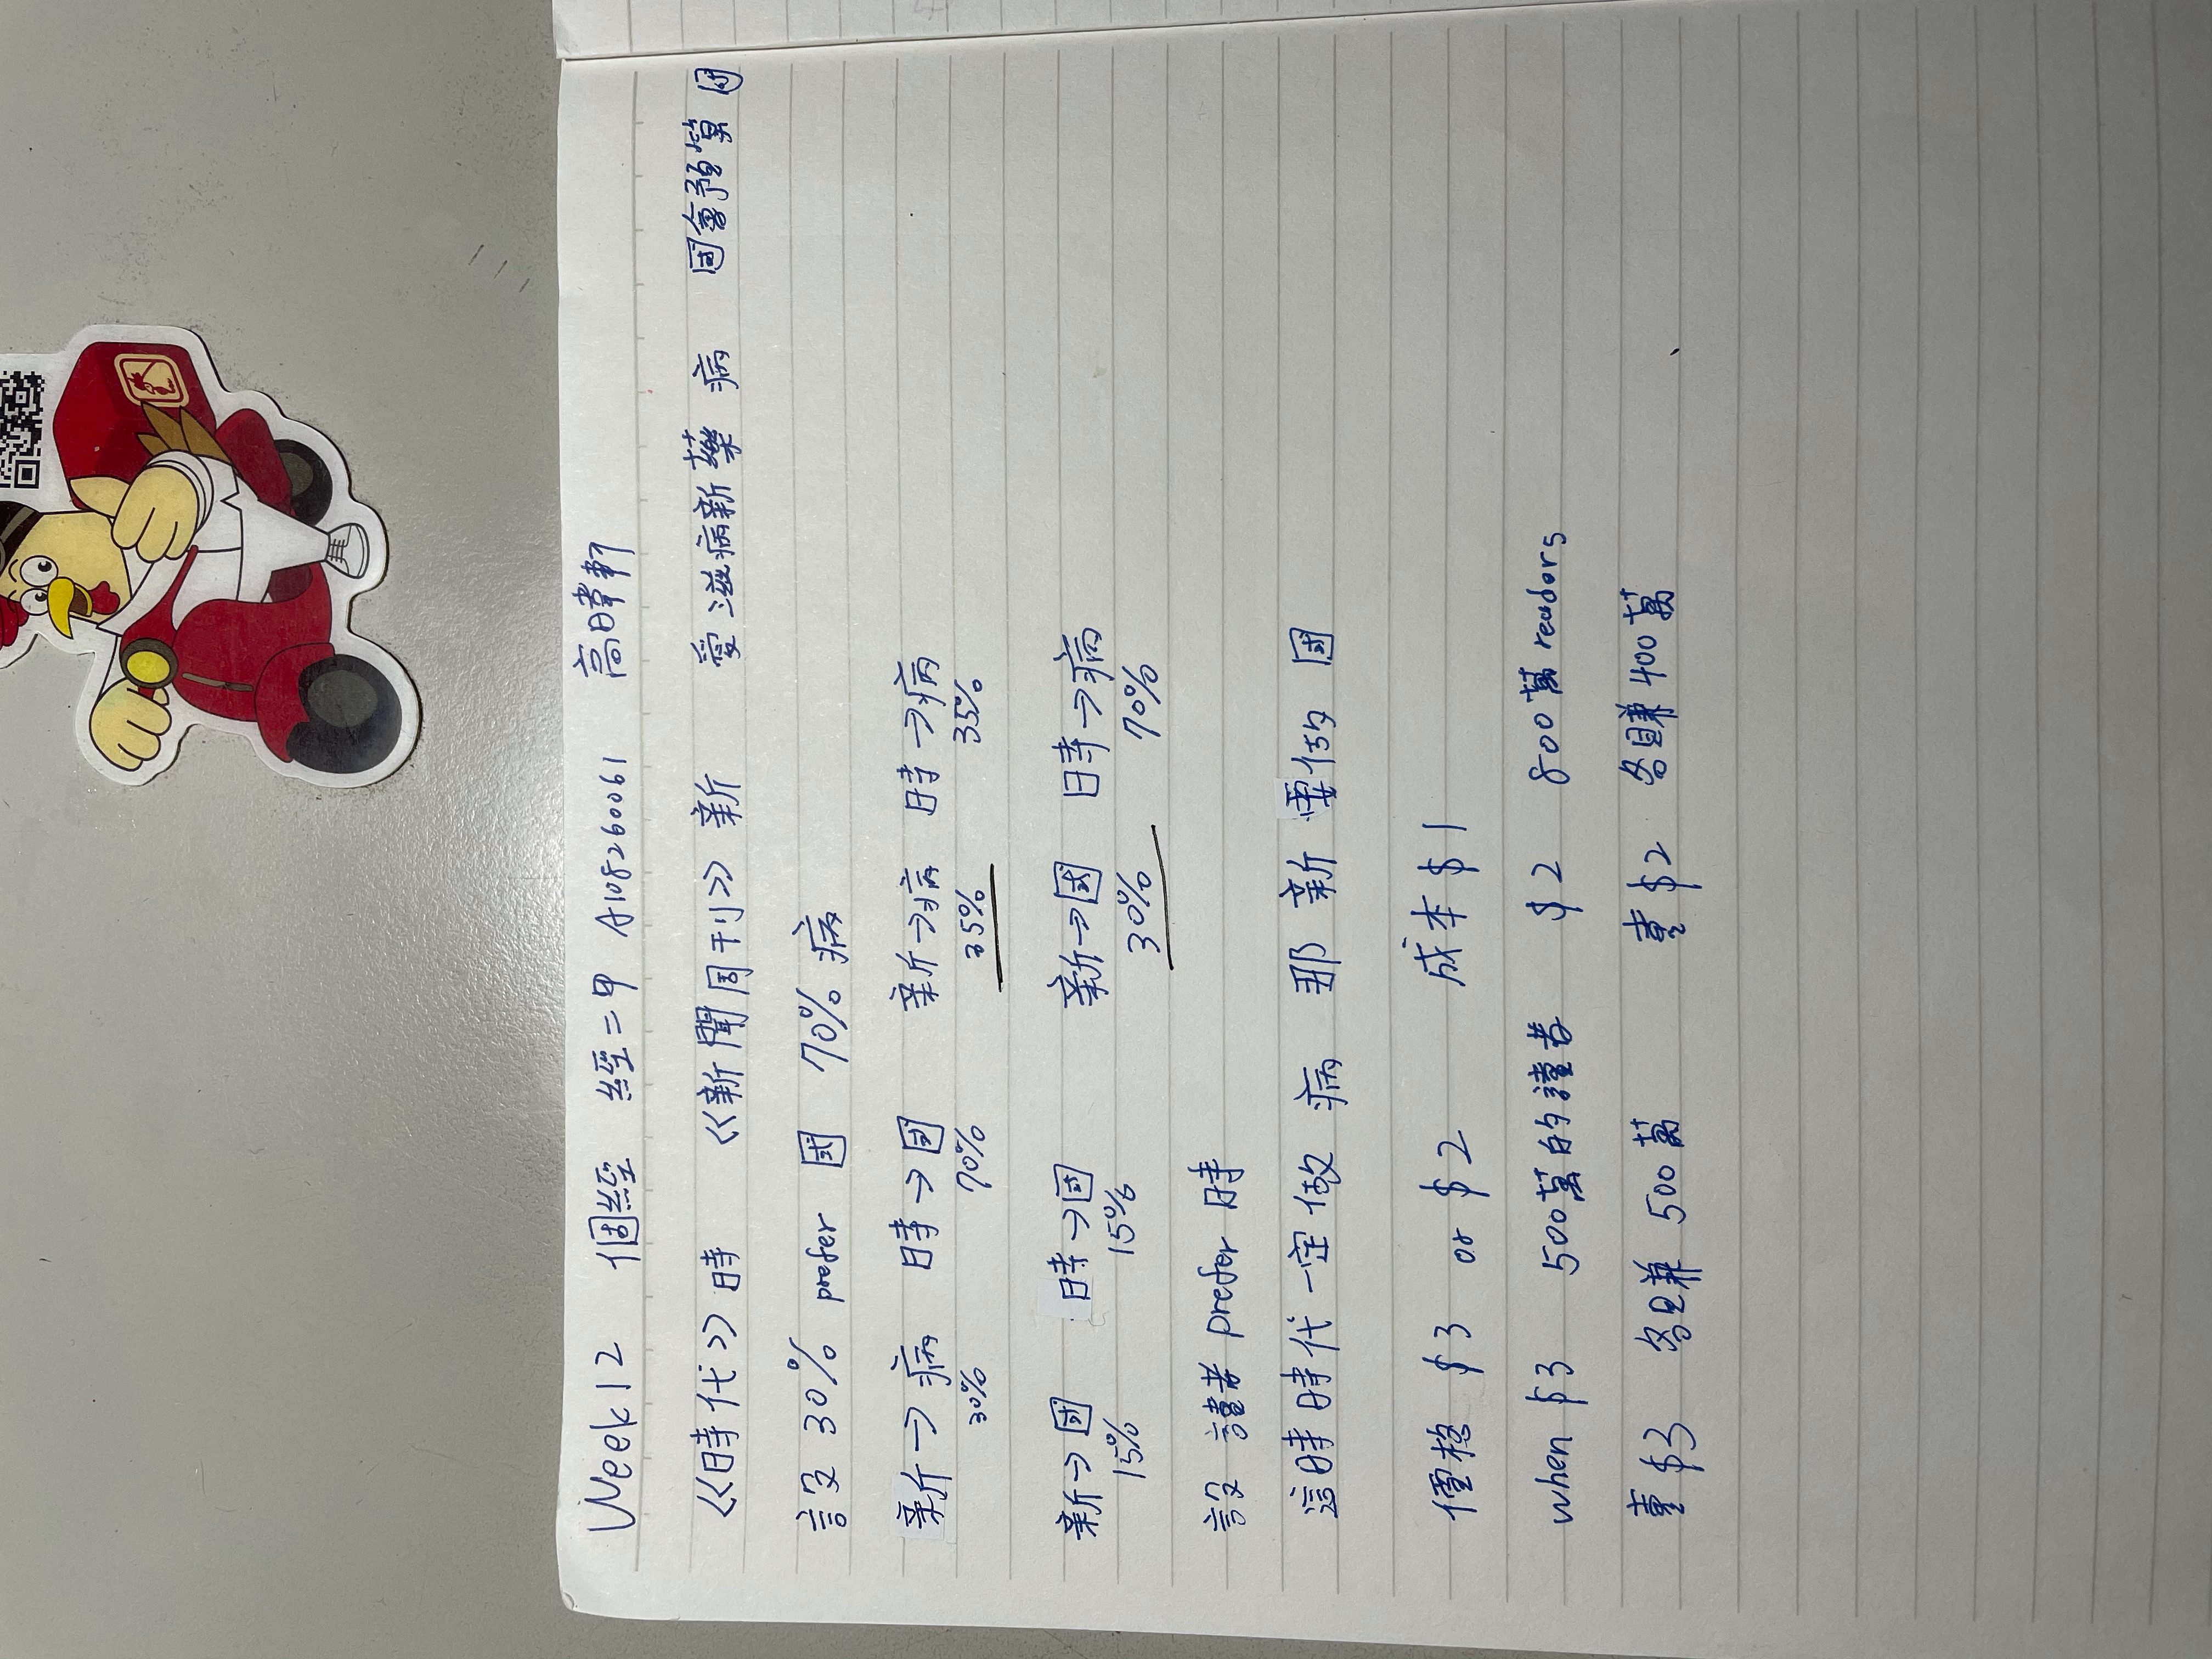 Week12 個經 經二甲 A108260061 高暐軒
<<時代>> 時 <<新聞周刊>> 新 愛滋病新藥 病 国會預算 国
設 30% prefer 國 70% 病
新→病 時→国 新→病 時→病
30% 70% 35% 35%
新→国 時→国 新→國 時→病
15% 15% 30% 70%
設 讀者 prefer 時
這時時代一定做 病 那 新 要做 国
價格 $3 or $2 成本 $1
when $3 500萬的讀者 $2 800萬 readers
賣 $3 各賺 500萬 賣 $2 各賺 400萬